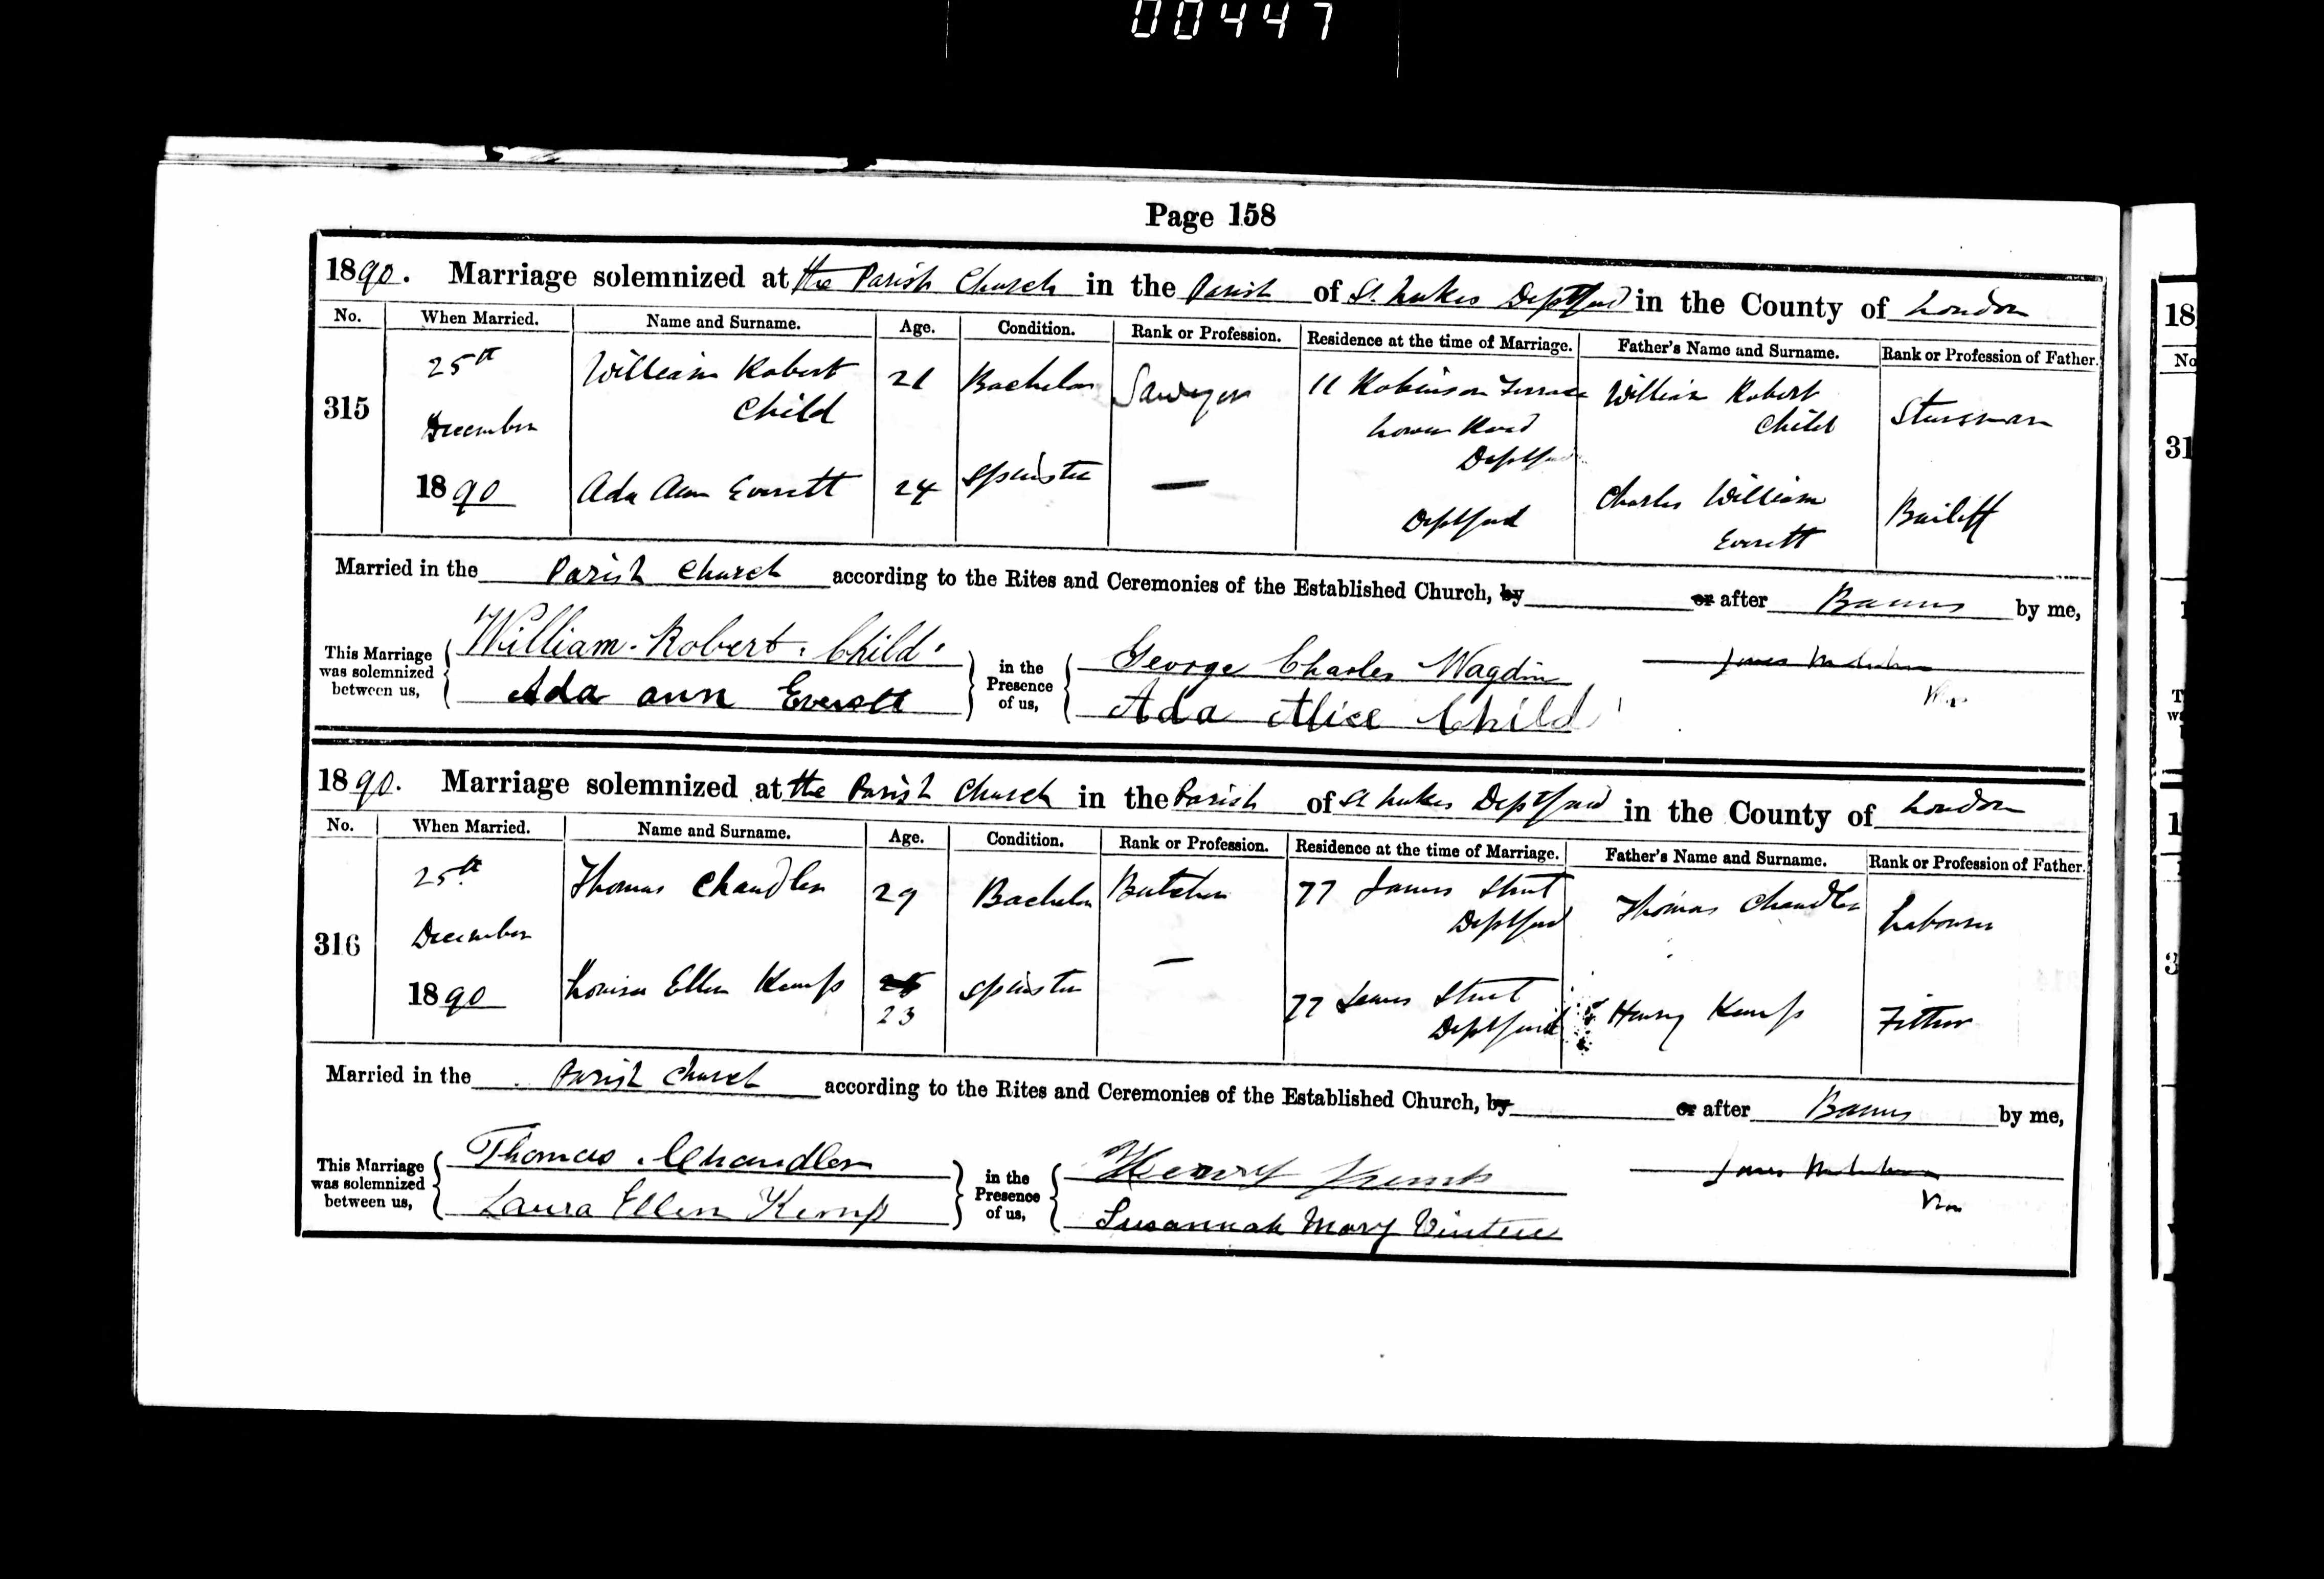 00447
Page 158
1890. Marriage solemnized at the Parish Church in the Parish of St. Lukes Deptford in the County of London
No. When Married. Name and Surname. Age. Condition. Rank or Profession. Residence at the time of Marriage. Father's Name and Surname. Rank or Profession of Father.
315 25th December 1890
William Robert Child 21 Bachelor Sawyer 11 Robinson Terrace Lower Road Deptford William Robert Child
Ada Ann Everett 24 Spinster — Deptford Charles William Everett Bailiff
Married in the Parish Church according to the Rites and Ceremonies of the Established Church, by or after Banns by me,
This Marriage was solemnized between us, William Robert Child
Ada ann Everett
in the Presence of us, George Charles Wagdin
Ada Alice Child
James
Vicar
1890. Marriage solemnized at the Parish Church in the Parish of St Lukes Deptford in the County of London
No. When Married. Name and Surname. Age. Condition. Rank or Profession. Residence at the time of Marriage. Father's Name and Surname. Rank or Profession of Father.
316 25th December 1890
Thomas Chandler 29 Bachelor Butcher 77 James Street Deptford Thomas Chandler Labourer
Louisa Ellen Kemp 23 Spinster — 77 James Street Deptford Henry Kemp Fitter
Married in the Parish Church according to the Rites and Ceremonies of the Established Church, by or after Banns by me,
This Marriage was solemnized between us, Thomas Chandler
Laura Ellen Kemp
in the Presence of us, Henry Kemp
Susannah Mary
James
Vicar